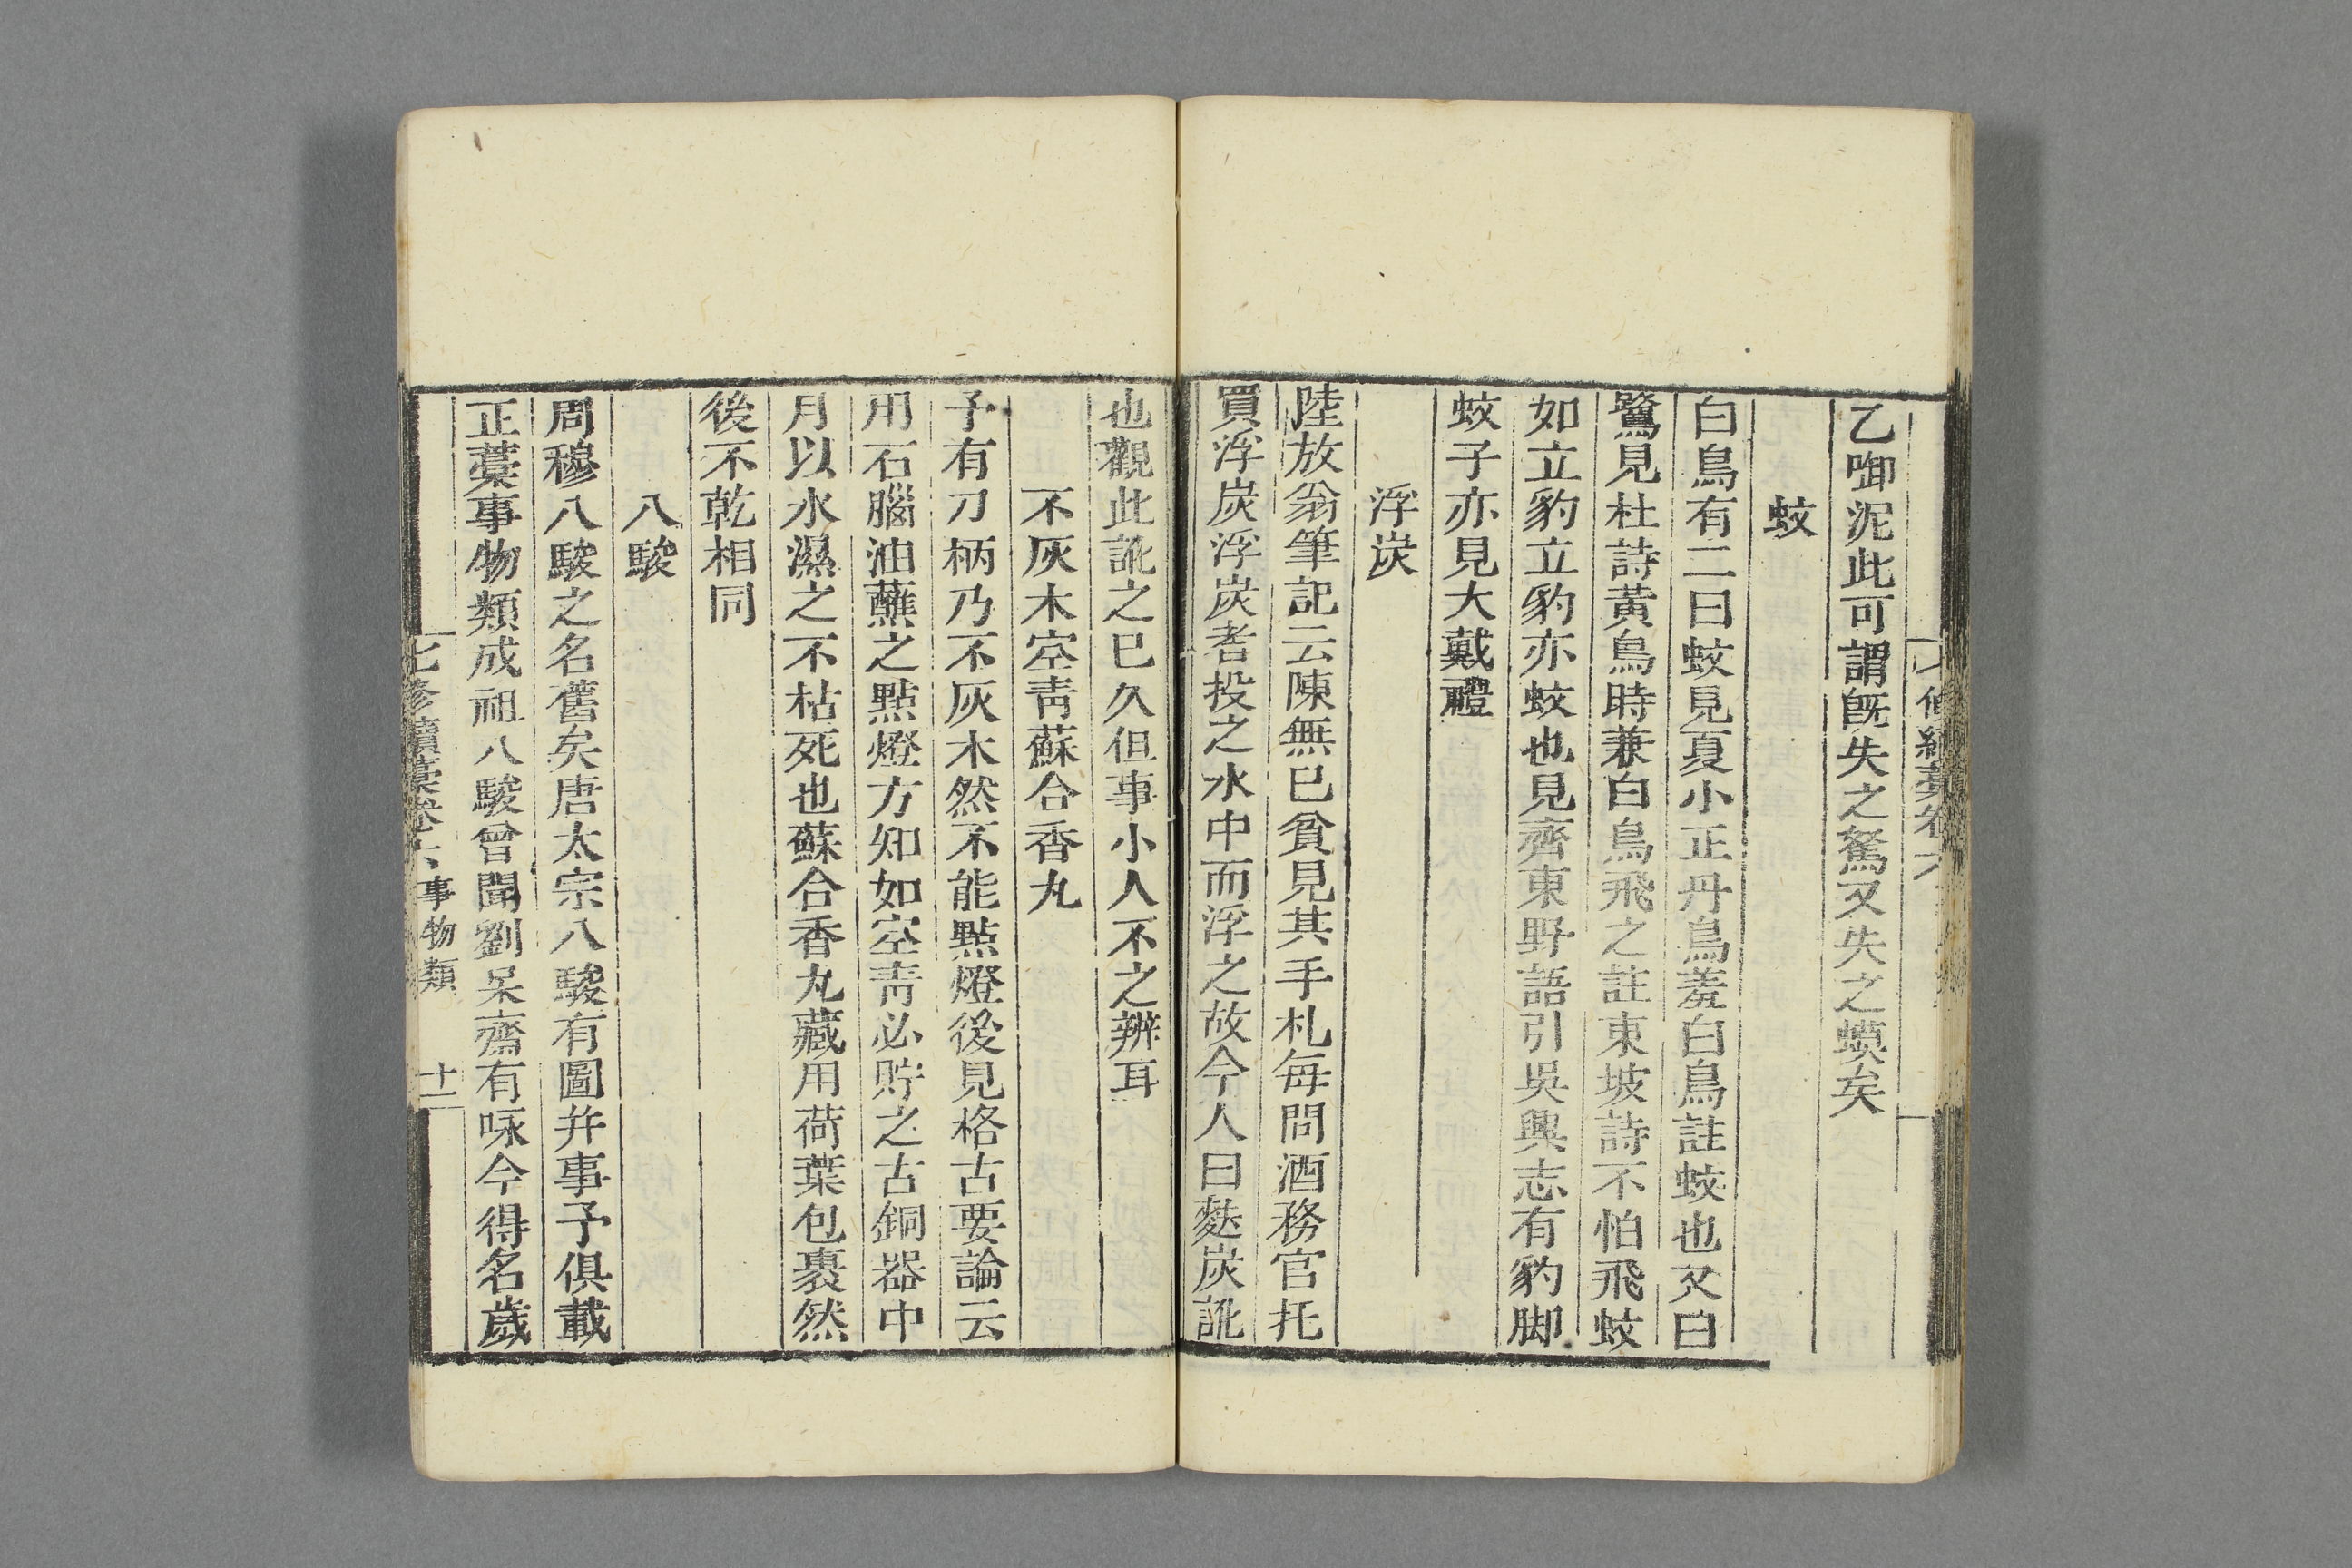 乙啣泥此可謂旣失之鴽又失之蟆矣
蚊
白鳥有二曰蚊見夏小正丹鳥羞白鳥註蚊也又曰
鷺見杜詩黃鳥時兼白鳥飛之註東坡詩不怕飛蚊
如立豹立豹亦蚊也見齊東野語引吳興志有豹脚
蚊子亦見大戴禮
浮炭
陸放翁筆記云陳無已貧見其手札每問酒務官托
買浮炭浮炭者投之水中而浮之故今人曰麩炭訛
也觀此訛之已久但事小人不之辨耳
不灰木空靑蘇合香丸
予有刀柄乃不灰木然不能㸃燈後見格古要論云
用石腦油蘸之㸃燈方知如空靑必貯之古銅器中
月以水濕之不枯死也蘇合香丸藏用荷葉包裹然
後不乾相同
八駿
周穆八駿之名舊矣唐太宗八駿有圖并事予俱載
正藁事物類成祖八駿曾聞劉呆齋有咏今得名歲
七修續藁卷六事物類 十一